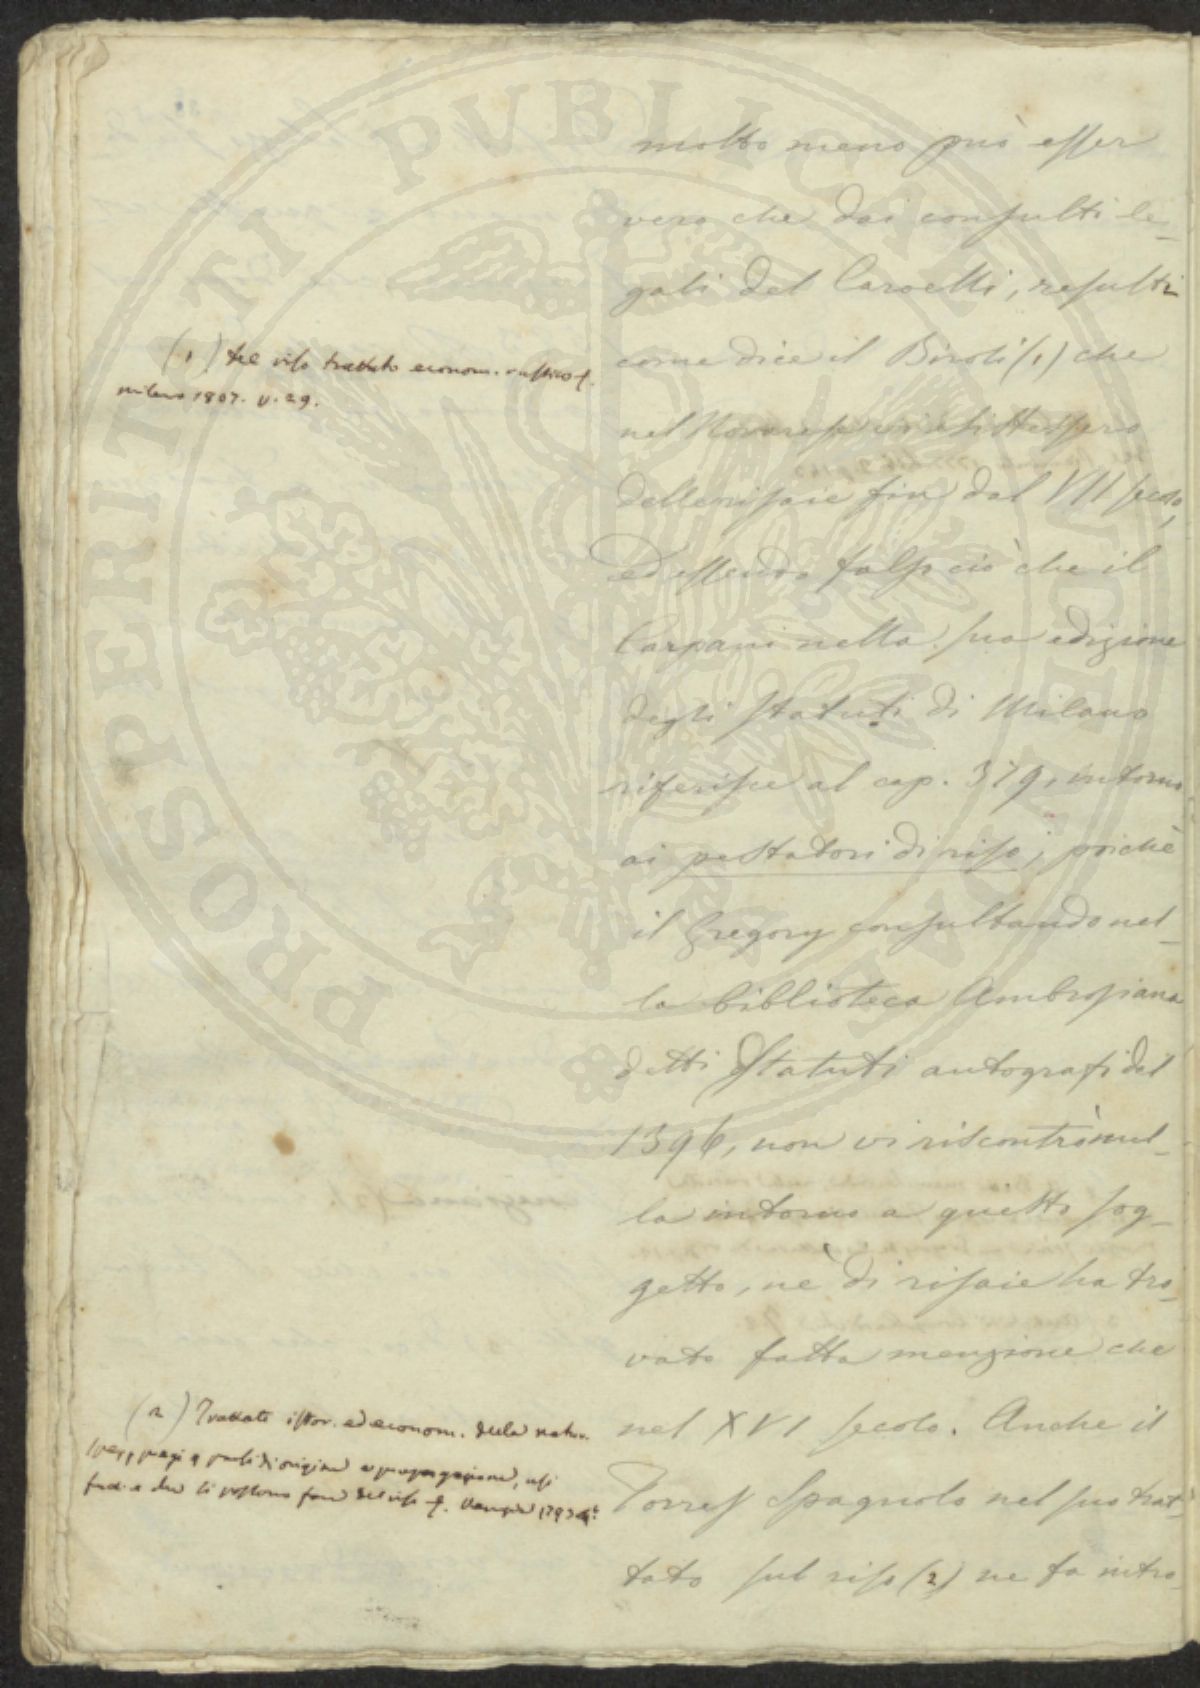 molto meno può esser
vero che dai consulti le-
gali del Caroelli, resulti
come dice il Biroli (1) che
nel Novarese vi esistessero
delle risaie fin dal VII seco,
ed essendo falso ciò che il
Carpani nella sua edizione
degli statuti di Milano
riferisce al cap. 379, intorno
ai pestatori di riso, poichè
il Gregory consultando nel-
la biblioteca Ambrosiana
detti Statuti autografi del
1396, non vi riscontrò nul-
la intorno a questo sog-
getto, nè di risaie ha tro-
vato fatta menzione che
nel XVI secolo. Anche il
Torres Spagnolo nel suo trat-
tato sul riso (2) ne fa intro-
(1) del riso trattato econom. rustico f.
milano 1807. p. 29.
(2) Trattato istor. ed econom. della natu-
paesi origine e propagazione, usi
che si possono fare del riso f. Venezia 1793
PROSPERITATI PUBLICAE AUGENDAE